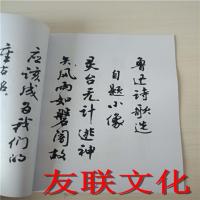 鲁迅诗歌选
自题小像
灵台无计逃神
矢风雨如磐闇故
应该成为我们的
座右
友联文化